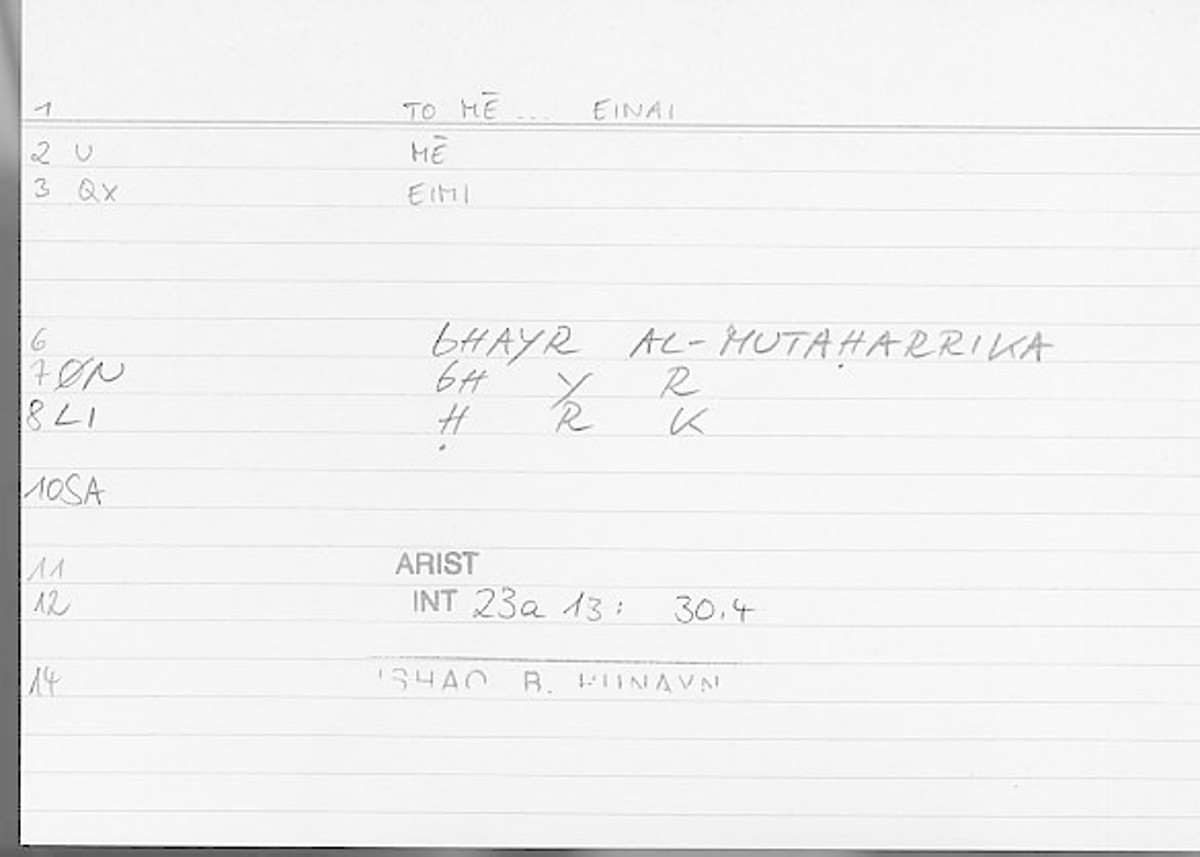 1 TO MĒ ... EINAI
2 U MĒ
3 QX EIMI
6 GHAYR AL-MUTAḤARRIKA
7 ØN GH Y R
8 LI Ḥ R K
10 SA
11 ARIST
12 INT 23a 13: 30.4
14 ISHAQ B. HUNAYN